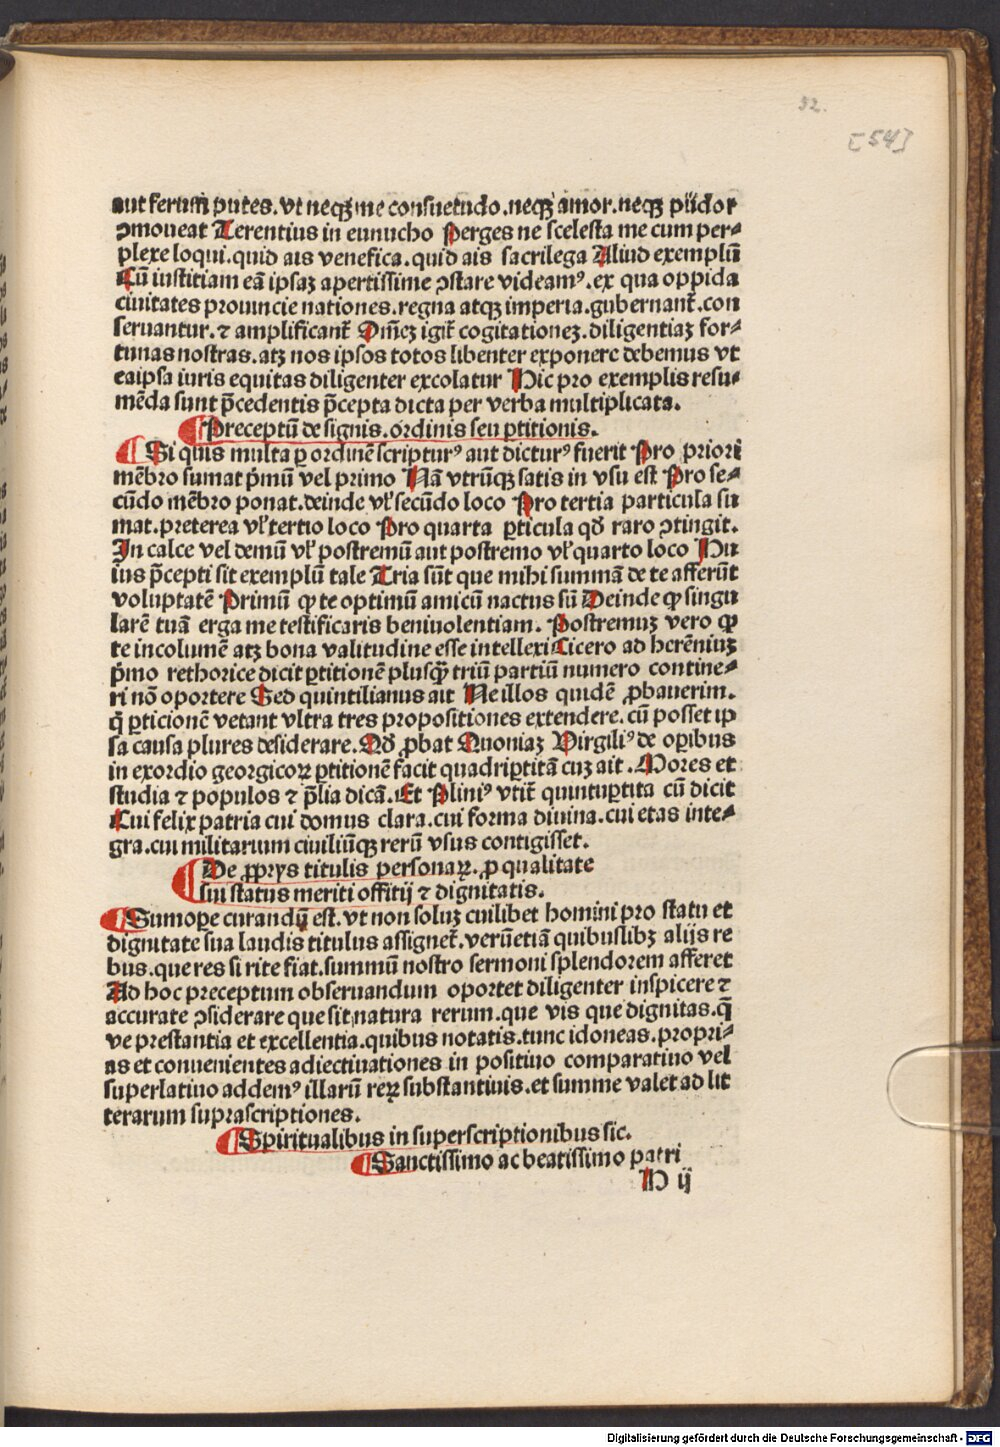 32.
[54]
aut ferum putes. vt neqꝫ me consuetudo. neqꝫ amor. neqꝫ pudor
ꝯmoueat Terentius in eunucho Perges ne scelesta me cum per⸗
plexe loqui. quid ais venefica. quid ais sacrilega Aliud exemplū
Cū iustitiam eā ipsaꝫ apertissime ꝯstare videamꝰ. ex qua oppida
ciuitates prouincie nationes. regna atqꝫ imperia. gubernant̄. con
seruantur. ⁊ amplificant̄ Om̄eꝫ igit̄ cogitationeꝫ. diligentiaꝫ for⸗
tunas nostras. atꝫ nos ipsos totos libenter exponere debemus vt
eaipsa iuris equitas diligenter excolatur Hic pro exemplis resu⸗
mēda sunt p̄cedentis p̄cepta dicta per verba multiplicata.
¶Preceptū de signis. ordinis seu ꝑtitionis.
¶Si quis multa ꝑ ordinē scripturꝰ aut dicturꝰ fuerit Pro priori
mēbro sumat p̄mū vel primo Nā vtrūqꝫ satis in vsu est Pro se⸗
cūdo mēbro ponat. deinde vl̓ secūdo loco Pro tertia particula su
mat. preterea vl̓ tertio loco Pro quarta ꝑticula qđ raro ꝯtingit.
In calce vel demū vl̓ postremū aut postremo vl̓ quarto loco Hu
ius p̄cepti sit exemplū tale Tria sūt que mihi summā de te afferūt
voluptatē Primū ꝙ te optimū amicū nactus sū Deinde ꝙ singu
larē tuā erga me testificaris beniuolentiam. Postremuꝫ vero ꝙ
te incolumē atꝫ bona valitudine esse intellexi Cicero ad herēniuꝫ
p̄mo rethorice dicit ꝑtitionē plusqꝫ̄ triū partiū numero contine⸗
ri nō oportere Sed quintilianus ait Ne illos quidē ꝓbauerim.
q̇ ꝑticionē vetant vltra tres propositiones extendere. cū posset ip
sa causa plures desiderare. Qđ ꝓbat Quoniaꝫ Virgiliꝰ de oꝑibus
in exordio georgicoꝝ ꝑtitionē facit quadriꝑtitā cuꝫ ait. Mores et
studia ⁊ populos ⁊ p̄lia dicā. Et Pliniꝰ vtit̄ quintuꝑtita cū dicit
Cui felix patria cui domus clara. cui forma diuina. cui etas inte⸗
gra. cui militarium ciuiliūqꝫ rerū vsus contigisset.
¶De ꝓprijs titulis personaꝝ. ꝓ qualitate
sui status meriti offitij ⁊ dignitatis.
¶Sumoꝑe curandū est. vt non soluꝫ cuilibet homini pro statu et
dignitate sua laudis titulus assignet̄. verūetiā quibuslibꝫ alijs re
bus. que res si rite fiat. summū nostro sermoni splendorem afferet
Ad hoc preceptum obseruandum oportet diligenter inspicere ⁊
accurate ꝯsiderare que sit natura rerum. que vis que dignitas. q̄
ve prestantia et excellentia. quibus notatis. tunc idoneas. propri⸗
as et conuenientes adiectiuationes in positiuo comparatiuo vel
superlatiuo addemꝰ illarū reꝝ substantiuis. et summe valet ad lit
terarum suprascriptiones.
¶Spiritualibus in superscriptionibus sic.
¶Sanctissimo ac beatissimo patri
H ij
Digitalisierung gefördert durch die Deutsche Forschungsgemeinschaft - DFG